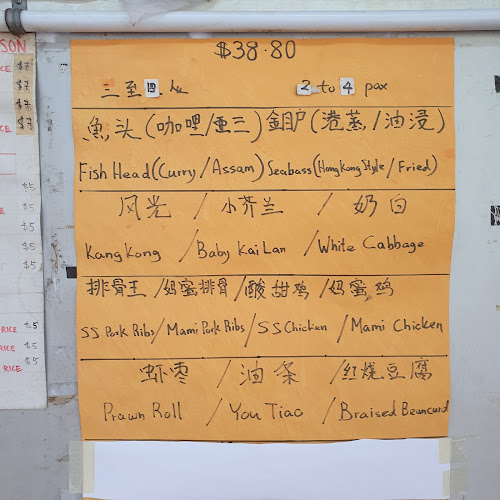 $38.80
三至四人 2 to 4 pax
魚头(咖哩/亚三)金目鲈(港蒸/油浸)
Fish Head(Curry/Assam) Seabass(Hong Kong Style/Fried)
风光 / 小芥兰 / 奶白
Kang Kong / Baby Kai Lan / White Cabbage
排骨王/妈蜜排骨/酸甜鸡/妈蜜鸡
SS Pork Ribs/Mami Pork Ribs/SS Chicken/Mami Chicken
虾枣 / 油条 /红烧豆腐
Prawn Roll / You Tiao / Braised Beancurd
SON
RICE $7
$7
$7
$7
$5
$5
$5
$5
$5
RICE $5
RICE $5
RICE $5